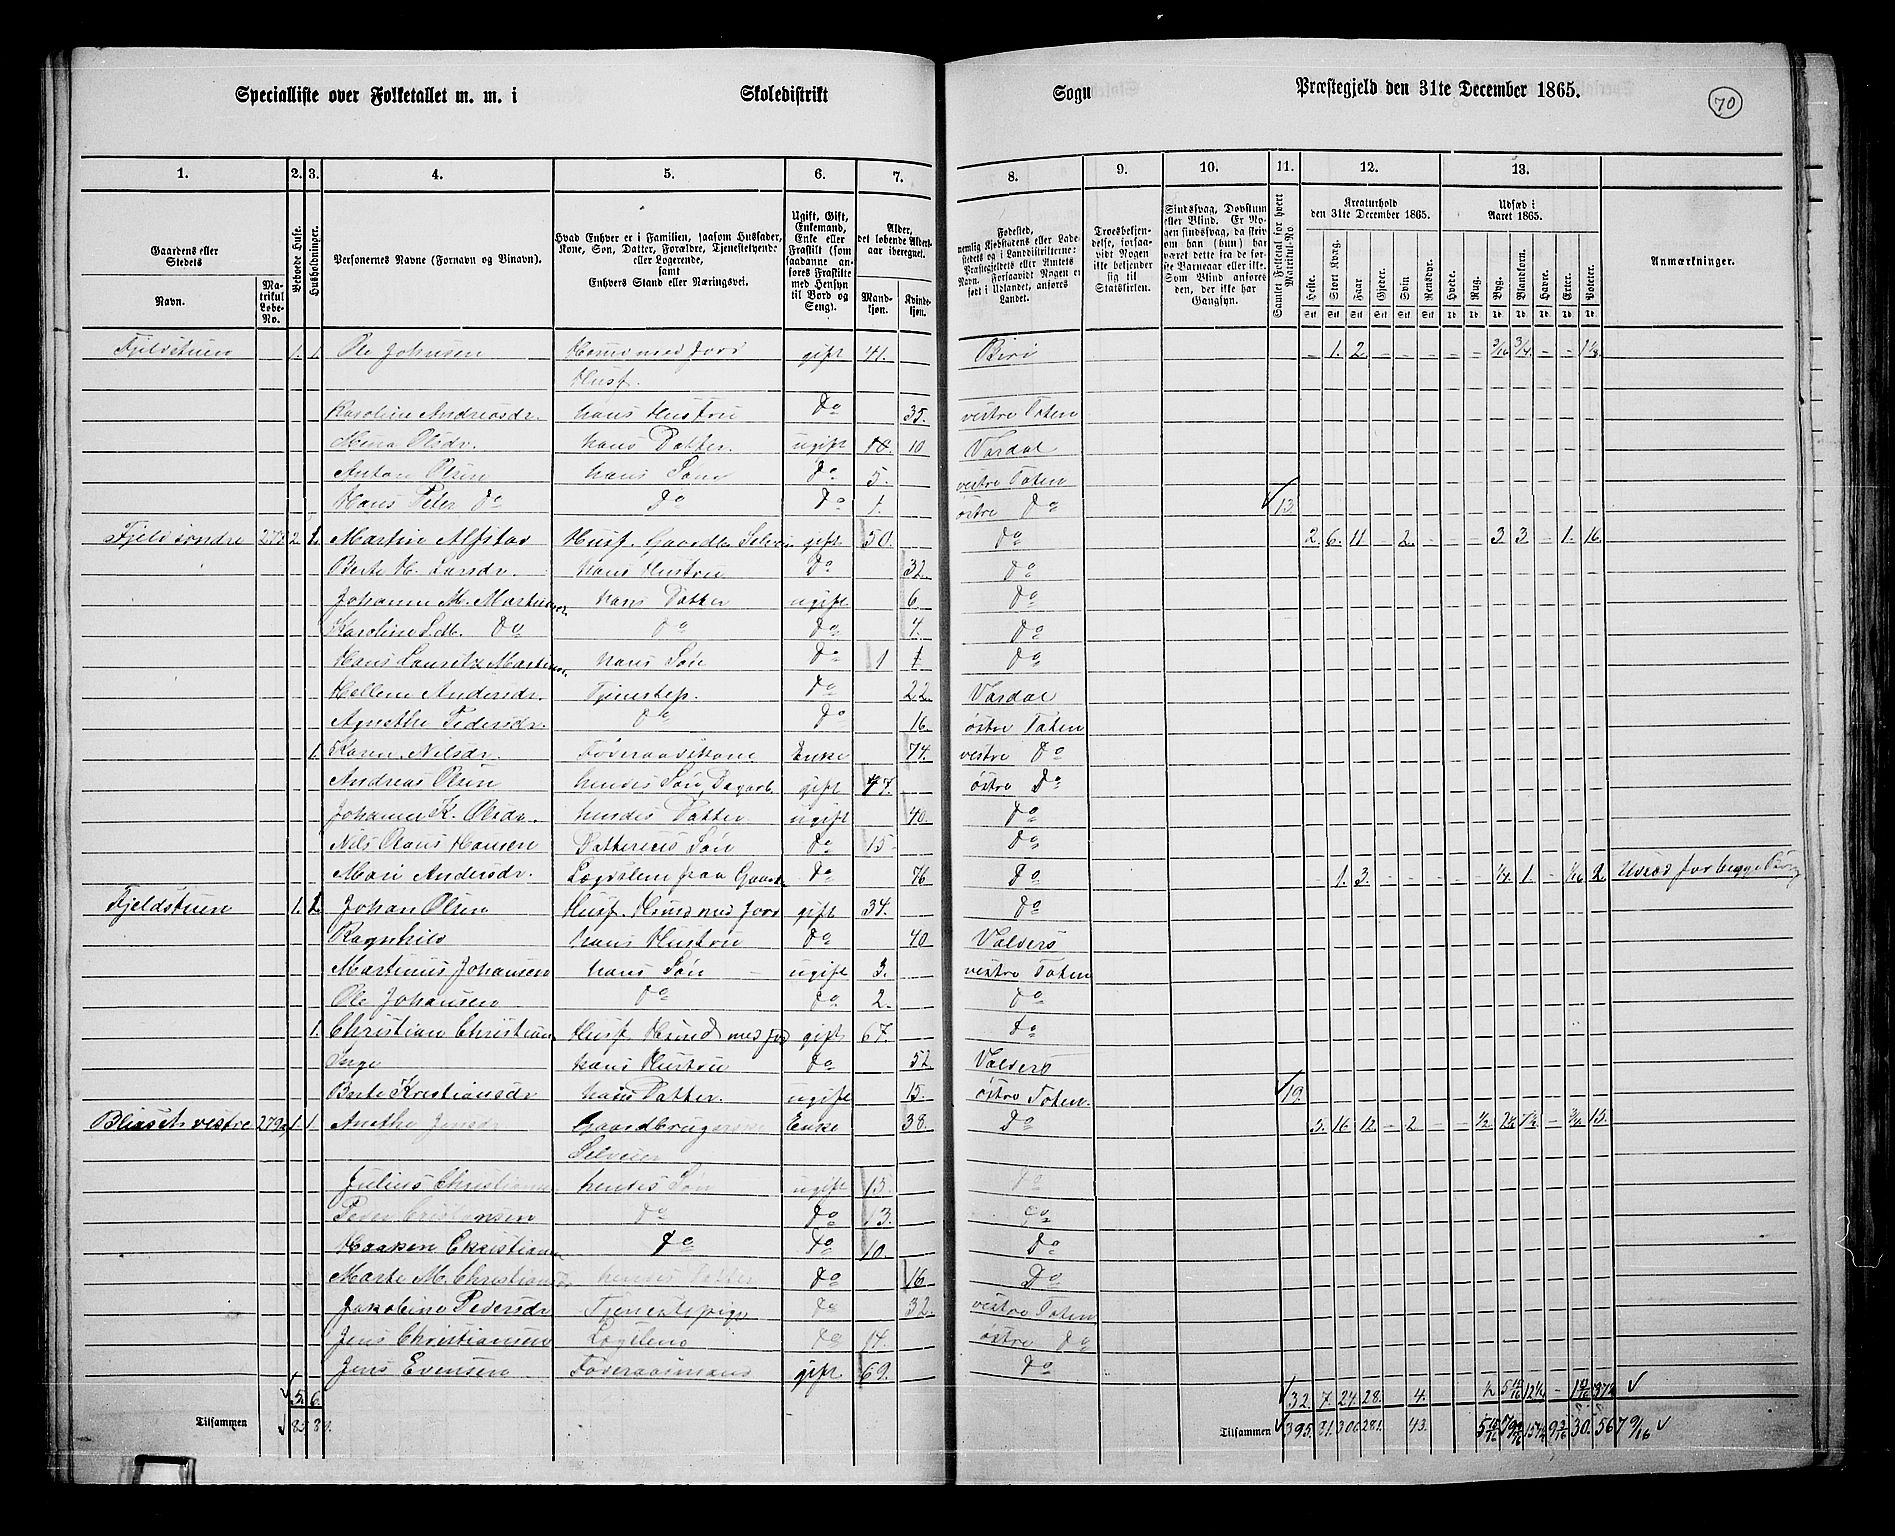 Specialliste over Folketallet m. m. i Skoledistrikt Sogn Præstegjeld den 31te December 1865. 70
1. 2. 3. 4. 5. 6. 7. 8. 9. 10. 11. 12. 13.
Gaardens eller Stedets Navn. Matrikul Løbe-No.
Beboede Huse. Husholdninger.
Personernes Navne (Fornavn og Binavn).
Hvad Enhver er i Familien, saasom Husfader, Kone, Søn, Datter, Forældre, Tjenestetyende eller Logerende, samt Enhvers Stand eller Næringsvei.
Ugift, Gift, Enkemand, Enke eller Fraskilt (som saadanne anføres Fraskilte med Hensyn til Bord og Seng).
Alder, det løbende Aldersaar iberegnet. Mandkjøn. Kvindekjøn.
Fødested, nemlig Kjøbstadens eller Ladestedets og i Landdistrikterne: Præstegjeldets eller Amtets Navn. Forsaavidt Nogen er født i Udlandet, anføres Landet.
Troesbekjendelse, forsaavidt Nogen ikke bekjender sig til Statskirken.
Sindssvag, Døvstum eller Blind. Er Nogen sindssvag, da skriv om han (hun) har været dette fra de første Barneaar eller ikke. Som Blind anføres den, der ikke har Gangsyn.
Samlet Folketal for hvert Matrikul-No.
Kreaturhold den 31te December 1865. Heste. Stort Kvæg. Faar. Gjeder. Svin. Rensdyr.
Udsæd i Aaret 1865. Hvede. Rug. Byg. Blandkorn. Havre. Erter. Poteter.
Anmærkninger.
Fjeldstuen 1. 1. Ole Johnsen Husmd med Jord gift 41. Biri - 1. 2. - - - - - 3/16 3/4 - - 1 1/2
Husf.
Karoline Andreasdr. hans Hustru Do 35. vestre Toten
Mina Olsdr. hans Datter. ugift 10 Vardal
Anton Olsen hans Søn Do 5. vestre Toten
Hans Peter Do Do Do 1. østre Do 13
Fjeld søndre 2. 1. Martin Alfstad Husf. Gaardbr. Selveier gift 50. Do 2. 6. 11 - 2. - - - 3 3 - 1. 16
Berte H. Larsdr. hans Hustru Do 32. Do
Johanne M. hans Datter ugift 6 Do
Karoline Do Do Do 4. Do
Hans Lauritz hans Søn Do 1 Do
Hellene Andersdr. Tjenestep. Do 22 Vardal
Agnethe Pedersdr. Do Do 16. østre Toten
1. Karen Nilsdr. Føderaadskone Enke 74. vestre Do
Andreas Olsen hendes Søn, Dagarb. gift 44. østre Do
Johanne K. Olsdr. hendes Datter ugift 40. Do
Nils Olaus Hansen Datterens Søn Do 15 Do
Mari Andersdr. Lægdslem fraa Do 76 Do - 1. 3. - - - - - 1/4 1. - 1/16 2. Udsæd for begge
Fjeldstuen 1. 1. Johan Olsen Husf. Husmd med Jord gift 34. Do
Ragnhild hans Hustru Do 40 Valders
Martinus Johansen hans Søn ugift 3. vestre Toten
Ole Johansen Do Do 2. Do
1. Christian Christian Husf. Husmd med Jord gift 67. Do
Inge hans Hustru Do 52 Valders
Berte Kristiansdr hans Datter. ugift 15. østre Toten. 19
vestre 279a 1. 1. Anethe Jensdr Gaardbrugerske Enke 38. Do 5. 16 12 - 2 - - 1/2
Selveier
Julius Christiansen hendes Søn ugift 15. Do
Peder Do Do 13. Do
Haaken Christian Do Do 10. Do
Marte M. Christiansdr hendes Datter Do 16 Do
Jakobine Pedersdr Tjenestepige Do 32. vestre Toten
Jens Christiansen Do 14. østre Do
Jens Evensen Føderaadsmand gift 69. Do
5. 6. 32. 7. 24. 28. 4.
Tilsammen Tilsammen 395. 31. 300 281. 43. 30. 567 9/16